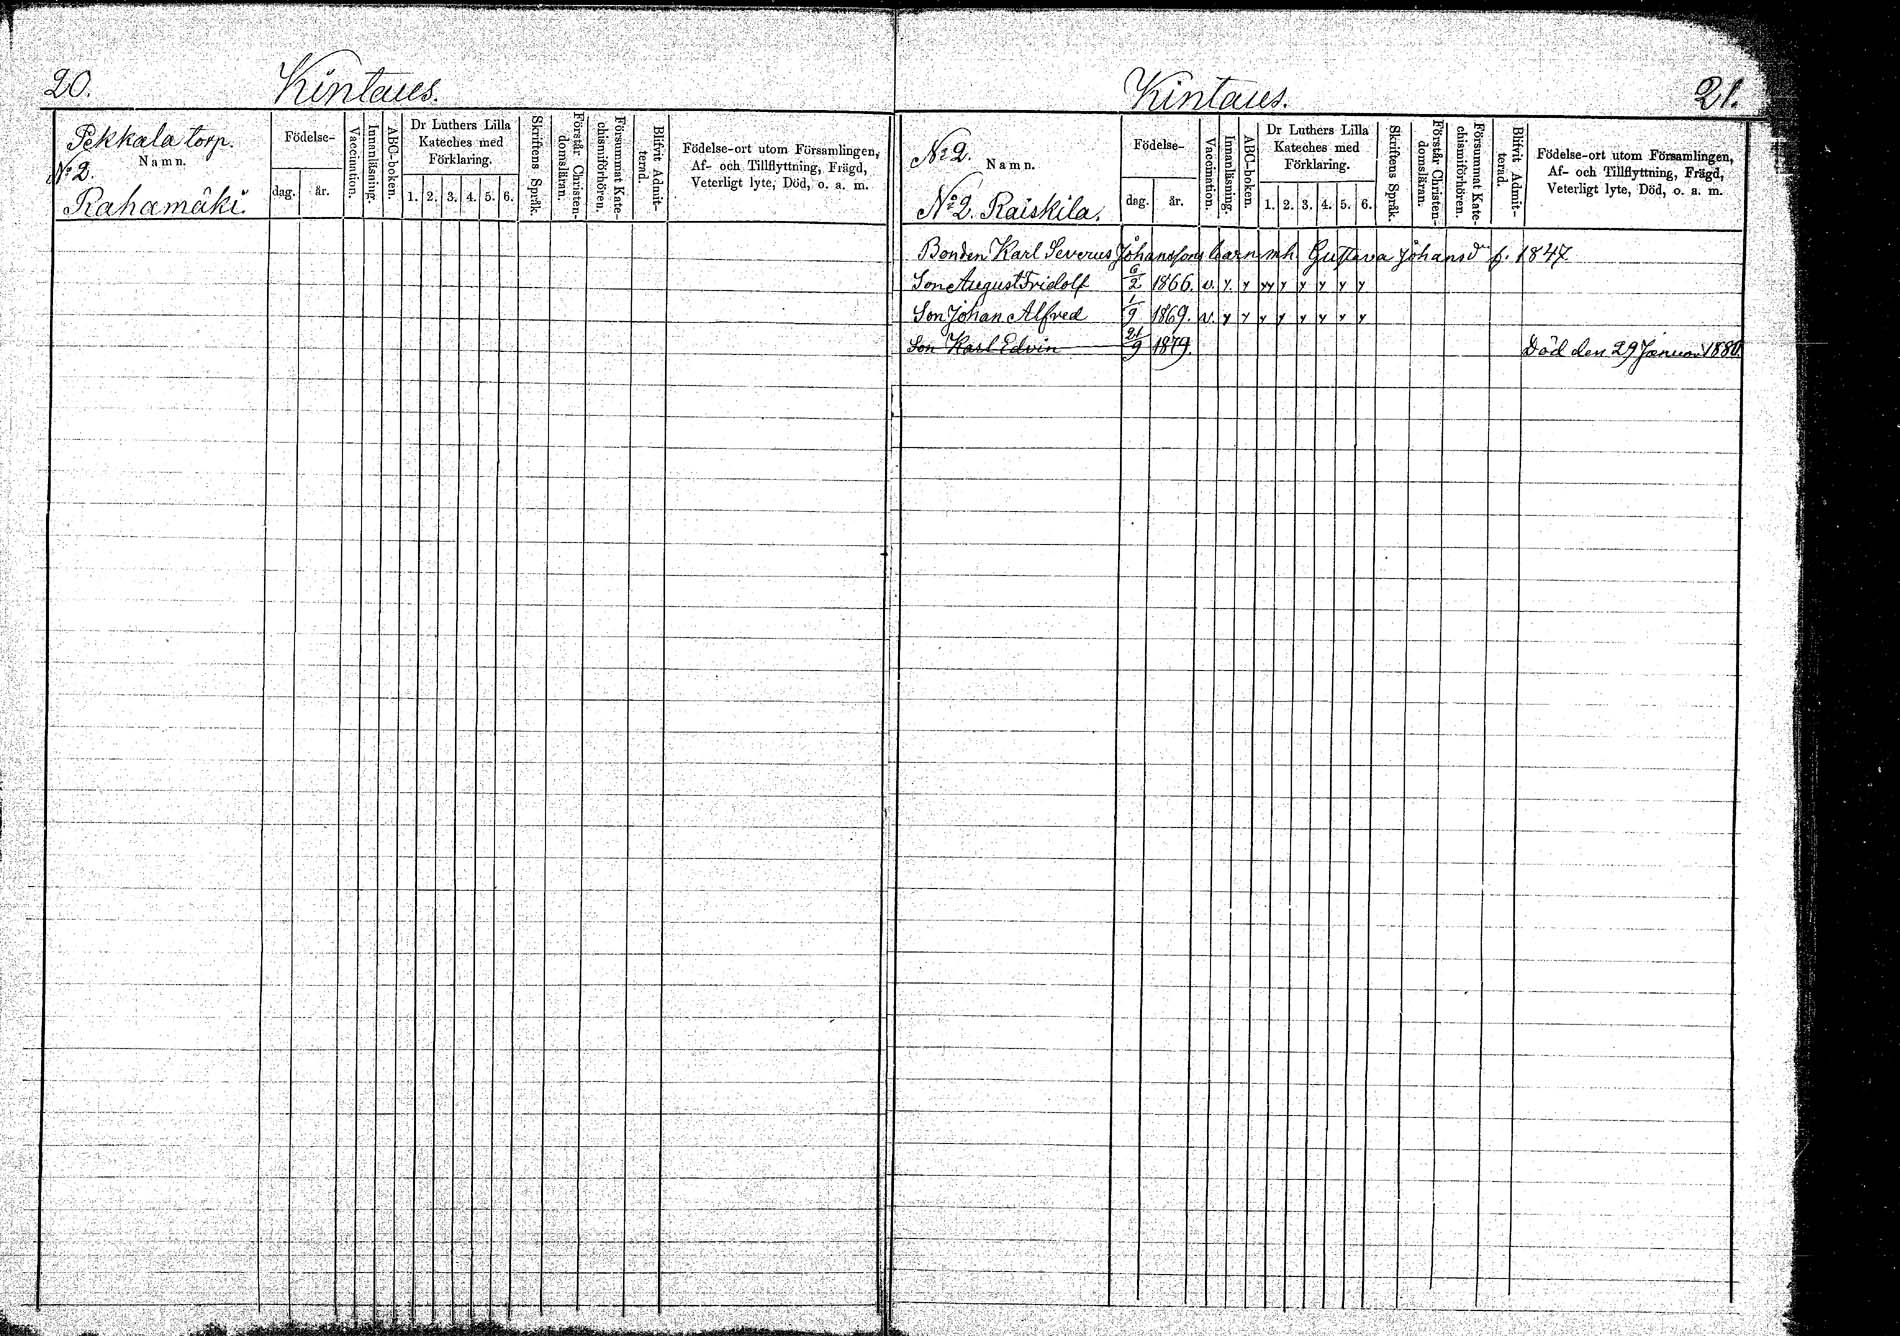 20.
Kintaus.
Pekkala torp.
Namn.
№ 2.
Rahamäki.
Födelse-
dag.
år.
Vaccination.
Innanläsning.
ABC-boken.
Dr Luthers Lilla
Kateches med
Förklaring.
1. 2. 3. 4. 5. 6.
Skriftens Språk.
Förstår Christen-
domsläran.
Försummat Kate-
chismiförhören.
Blifvit Admit-
terad.
Födelse-ort utom Församlingen,
Af- och Tillflyttning, Frägd,
Veterligt lyte, Död, o. a. m.
Kintaus.
21.
№ 2.
Namn.
№ 2. Raiskila.
Födelse-
dag.
år.
Vaccination.
Innanläsning.
ABC-boken.
Dr Luthers Lilla
Kateches med
Förklaring.
1. 2. 3. 4. 5. 6.
Skriftens Språk.
Förstår Christen-
domsläran.
Försummat Kate-
chismiförhören.
Blifvit Admit-
terad.
Födelse-ort utom Församlingen,
Af- och Tillflyttning, Frägd,
Veterligt lyte, Död, o. a. m.
Bonden Karl Severus Johanssons barn m h. Gustava Johansdr f. 1847
Son August Fridolf 6/2 1866. v. y. y yy y y y y y
Son Johan Alfred 1/9 1869. v. y y y y y y y y
Son Karl Edvin 21/9 1879. Död den 29 Januari 1880.